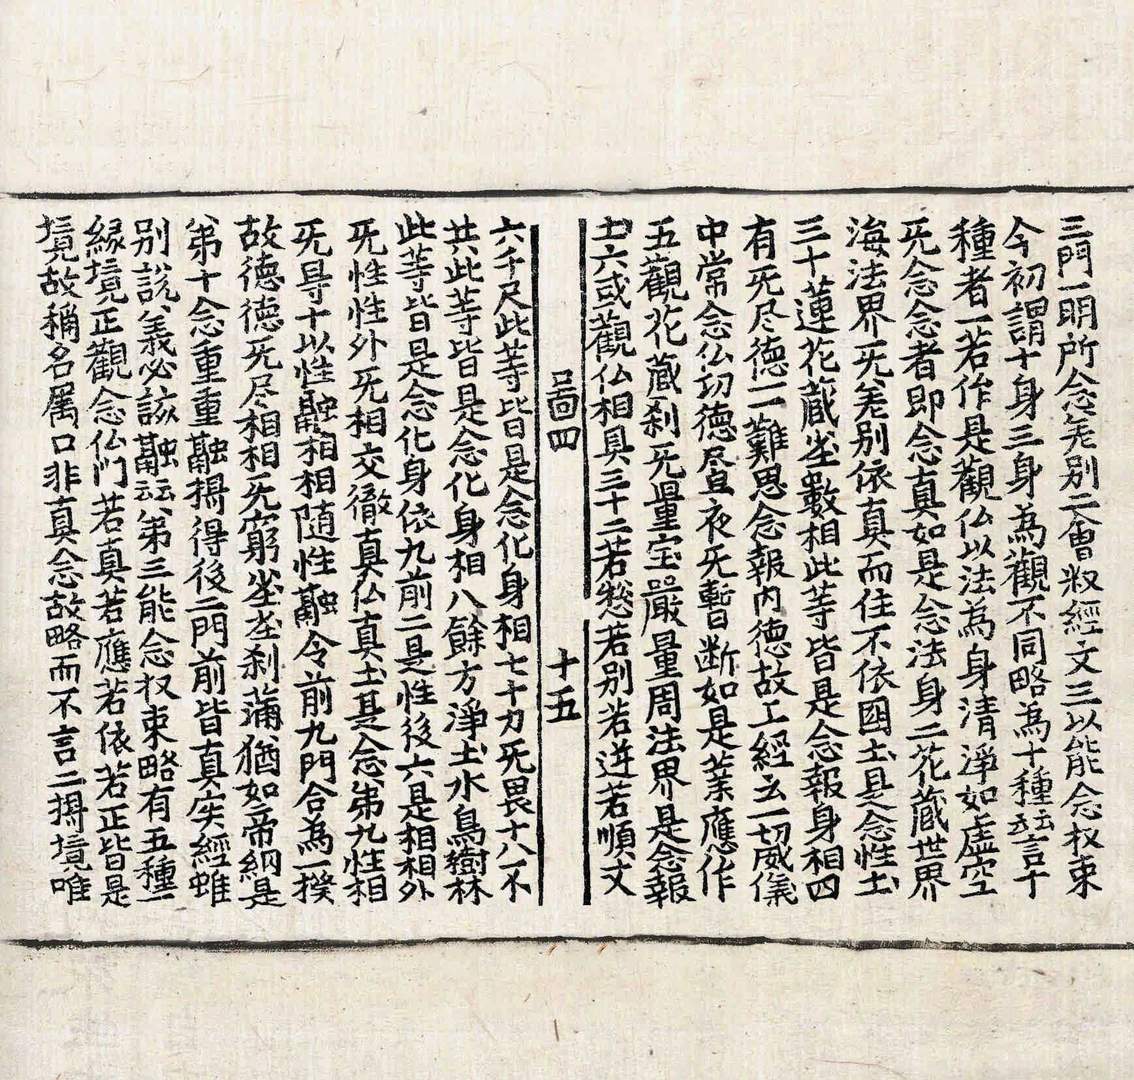 三門一明所念差別二會叙經文三以能念权束
今初謂十身三身為觀不同略為十種云言十
種者一若作是觀仏以法為身清淨如虚空
旡念念者即念真如是念法身二花蔵世界
海法界旡差别依真而住不依囶土是念性土
三十蓮花蔵坐數相此等皆是念報身相四
有旡尽德一一難思念報內德故工經云一切威儀
中常念仏功德昼夜旡暫断如是業應作
五觀花蔵刹旡量宝嚴量周法界是念報
土六或觀仏相具三十二若愁若别若逆若順丈
畐四
十五
六千尺此等皆是念化身相七十力旡畏十八不
共此等皆是念化身相八餘方淨土水鳥樹林
此等皆是念化身依九前二是性後六是相相外
旡性性外旡相交徹真仏真土是念第九性相
旡㝵十以性融相相隨性融令前九門合為一揆
故德德旡尽相相旡窮坐坐刹滿猶如帝網是
第十念重重融攝得後二門前皆真实經雖
别說義必該融云第三能念权束略有五種一
緣境正觀念仏門若真若應若依若正皆是
境故稱名属口非真念故略而不言二攝境唯